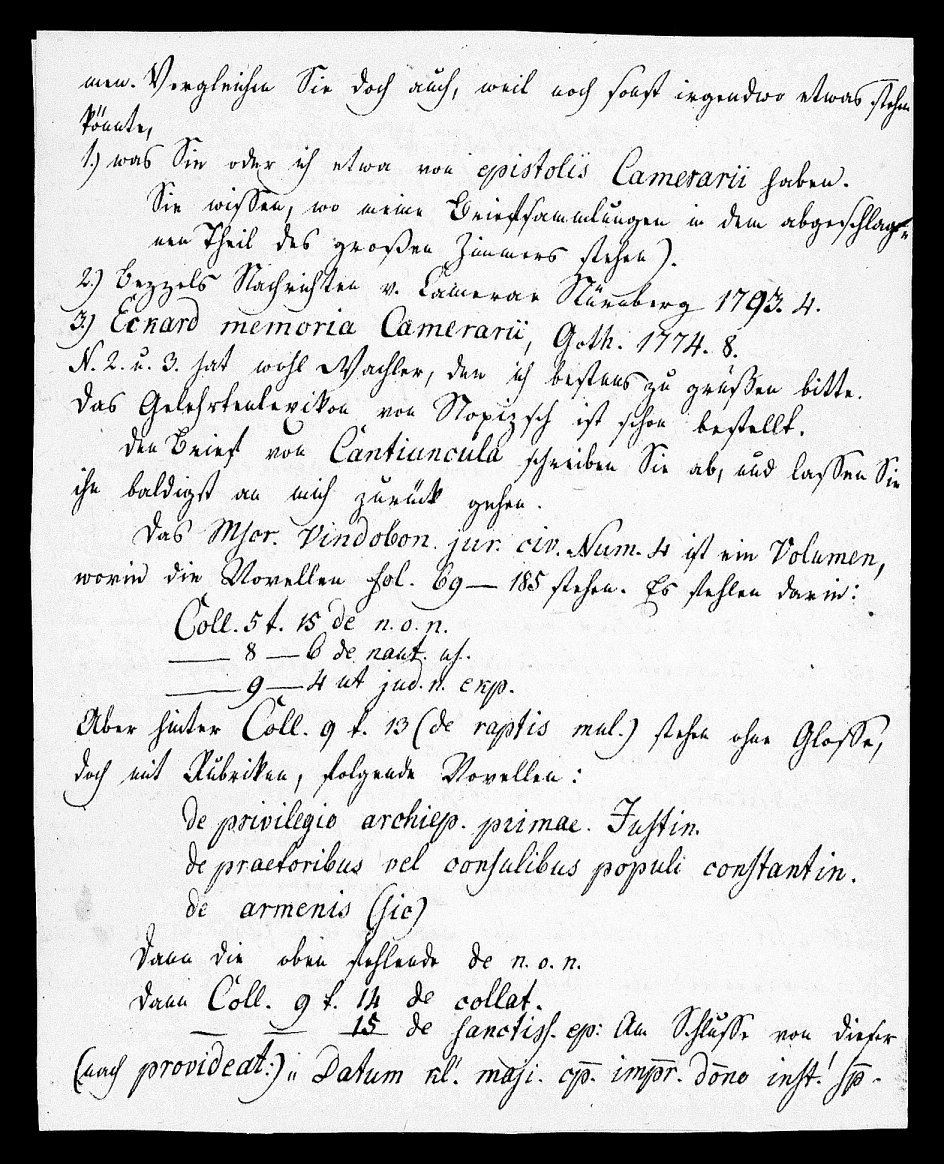 men. Vergleichen Sie doch auch, weil noch sonst irgendwo etwas stehen
könnte,
1.) was Sie oder ich etwa von epistolis Camerarii haben.
Sie wissen, wo meine Briefsammlungen in dem abgeschlage-
nen Theil des großen Zimmers stehen).
2.) Bezzels Nachrichten v. Camerar Nürnberg 1793. 4.
3.) Eckard memoria Camerarii, Goth. 1774. 8.
N. 2. u. 3. hat wohl Wachler, den ich bestens zu grüßen bitte.
Das Gelehrtenlexikon von Nopizsch ist schon bestellt.
Den Brief von Cantiuncula schreiben Sie ab, und lassen Sie
ihn baldigst an mich zurück gehen.
Das Mscr. Vindobon. jur. civ. Num. 4 ist ein Volumen,
worin die Novellen fol. 69 — 185 stehen. Es fehlen darin:
Coll. 5 t. 15 de n. o. n.
— 8 — 6 de naut. us.
— 9 — 4 ut jud. n. exp.
Aber hinter Coll. 9 t. 13 (de raptis mul.) stehen ohne Glosse,
doch mit Rubriken, folgende Novellen:
de privilegio archiep. primae. Justin.
de praetoribus vel consulibus populi constantin.
de armenis (sic)
Dann die oben fehlende de n. o. n.
Dann Coll. 9 t. 14 de collat.
— — 15 de sanctiss. ep: Am Schlusse von dieser
(nach provideat:) „ Datum kl'. maji. cp̄. impr̄. dōno inst.! sp̄.